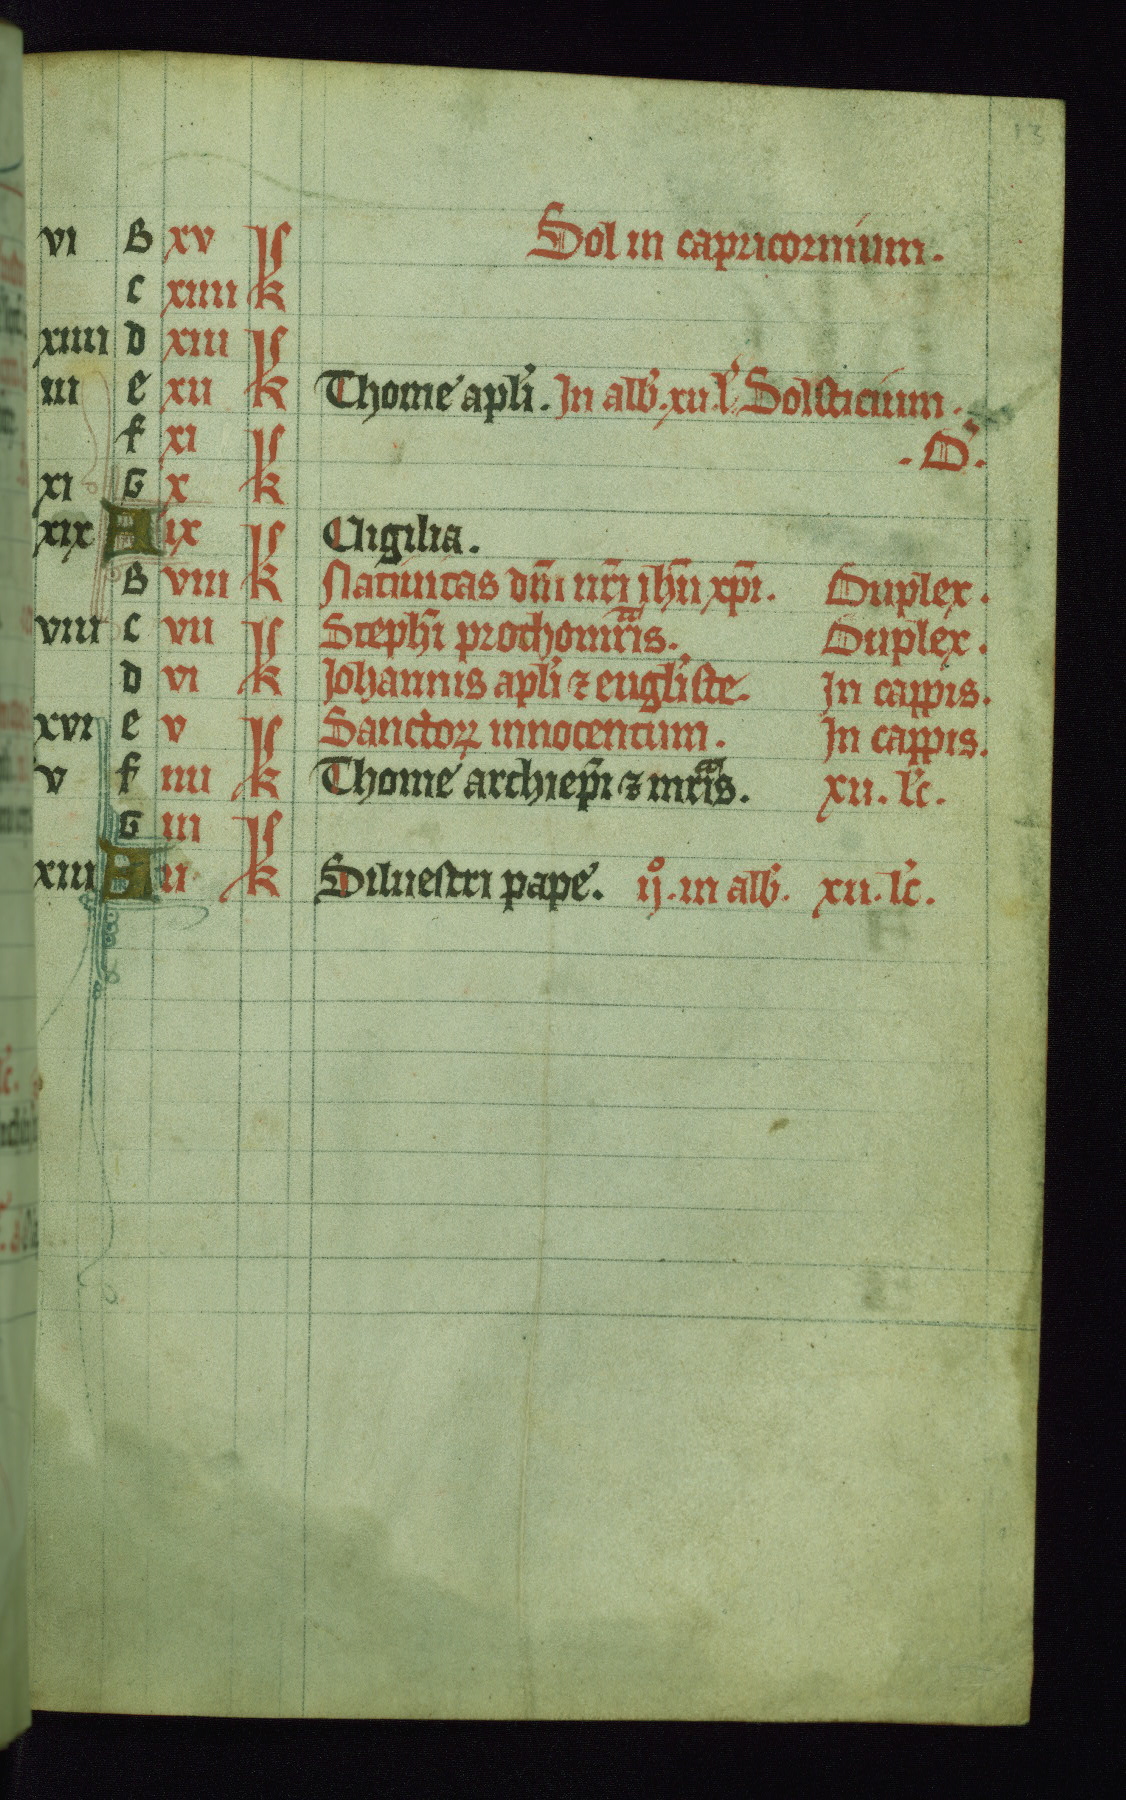 13
vi B xv kł Sol in capricornium.
C xiiii kł
xiiii d xiii kł
iii e xii kł Thome apl̄i. In alb̄. xii. l̄. Solsticium.
f xi kł .D.
xi G x kł
xix A ix kł Uigilia.
B viii kł Natiuitas dn̄i nr̄i ih̄u xp̄i. Duplex.
viii c vii kł Steph̄i prothomr̄is. Duplex.
d vi kł Johannis apl̄i ⁊ eugl̄iste. In cappis.
xvi e v kł Sanctoꝝ innocentum. In cappis.
v f iiii kł Thome archiep̄i ⁊ mr̄is. xii. lc̄.
G iii kł
xiii A ii kł Siluestri pape. ij. in alb̄. xii. lc̄.